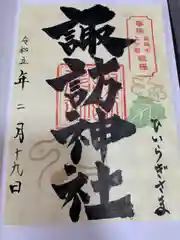 諏訪神社
令和五年二月十九日
ひいらぎさま